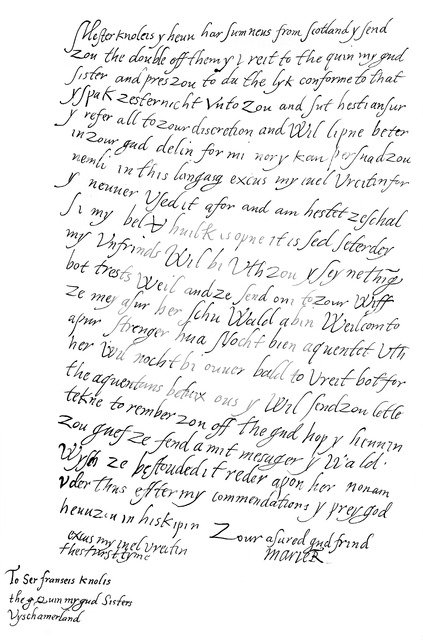 Mester knoleis y heuu har sum neus from scotland y send
zou the double off them y vreit to the quin my gud
sister and pres zou to du the lyk conforme to that
y spak zesternicht vnto zou and sut hesti ansur
y refer all to zour discretion and wil lipne beter
in zour gud delin for mi nor y kan persuad zou
nemli in this langasg excus my iuel vreitin for
y neuuer vsed it afor and am hestet ze schal
si my bel vhuilk is opne it is sed seterday
my vnfrinds wil bi vth zou y sey nething
bot trests weil and ze send oni to zour wiff
ze mey asur her schu wald a bin weilcom to
apur strenger hua nocht bien aquentet vth
her wil nocht bi ouuer bald to vreit bot for
the aquentans betuix ous y wil send zou letle
tekne to rember zou off the gud hop y heuu in
zou guef ze fend a mit mesager y wald
wysh ze bestouded it reder apon her non ani
vder thus effter my commendations y prey god
heuu zou in his kipin
Zour asured gud frind
MARIE R
excus my iuel vreitin
thes furst tyme
To Ser franseis knolis
the quin my gud Sisters
Vyschamerland